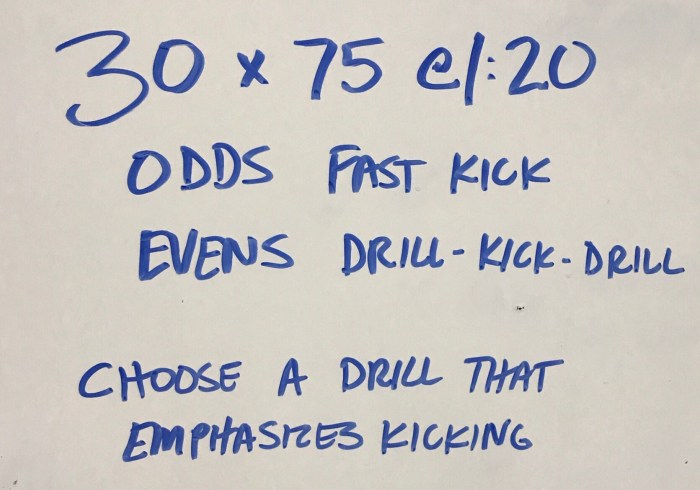 30 x 75 c/:20
ODDS FAST KICK
EVENS DRILL-KICK-DRILL
CHOOSE A DRILL THAT
EMPHASIZES KICKING